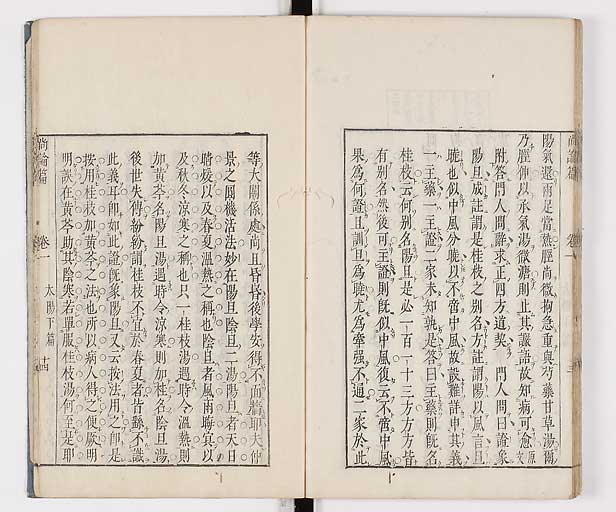 陽氣還兩足當熱脛尚微拘急重與芍藥甘草湯爾
乃脛伸以承氣湯微溏則止其讝語故知病可愈
附答門人問難求正四方道契　門人問曰證象
陽旦成註謂是桂枝之別名方註謂陽以風言旦
曉也似中風分曉以不啻中風故設難詳申其義
一主藥一主證二家未知孰是答曰主藥則既名
桂枝云何別名陽旦是必一百一十三方方方皆
有別名然後可主證則既似中風復云不啻中風
果為何證且訓旦為曉尤為牽强不通二家於此
等大關係處尚且昏昏後學安得不面牆耶夫仲
景之圓機活法妙在陽旦陰旦二湯陽旦者天日
晴煖以及春夏溫熱之稱也陰旦者風雨晦冥以
及秋冬涼寒之稱也只一桂枝湯遇時令溫熱則
加黃芩名陽旦湯遇時令涼寒則加桂名陰旦湯
後世失傳紛紛謂桂枝不宜於春夏者皆繇不識
此義耳即如此證既象陽旦又云按法用之即是
按用桂枝加黃芩之法也所以病人得之便厥明
明誤在黃芩助其陰寒若單服桂枝湯何至是耶
尚論篇
卷一
太陽下篇
十四